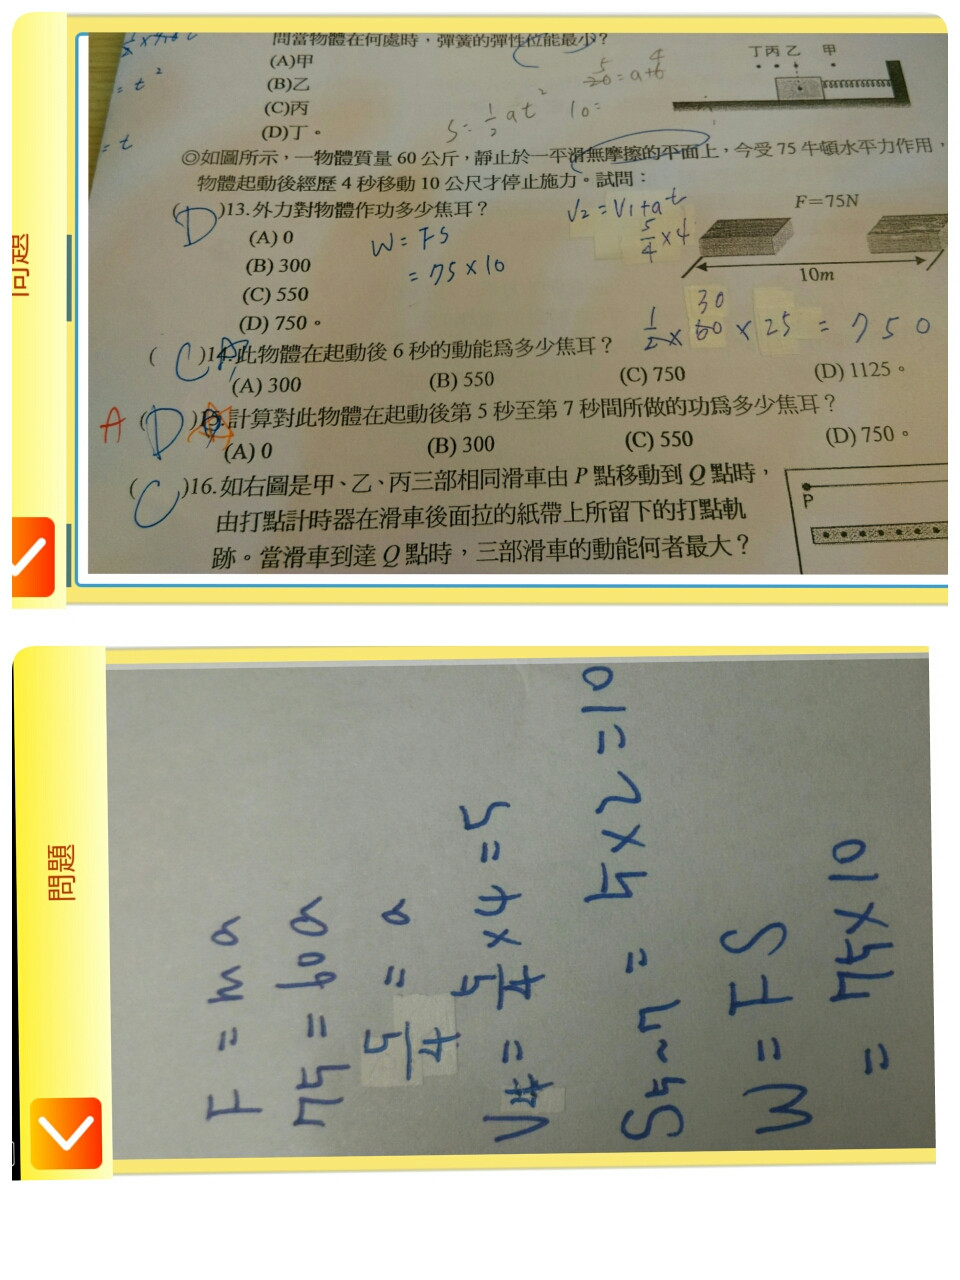 問當物體在何處時，彈簧的彈性位能最少?
(A)甲
(B)乙
(C)丙
(D)丁。
丁丙乙 甲
S = 1/2 at²
= t²
= t
◎如圖所示，一物體質量 60 公斤，靜止於一平滑無摩擦的平面上，今受 75 牛頓水平力作用，
物體起動後經歷 4 秒移動 10 公尺才停止施力。試問：
(D)13.外力對物體作功多少焦耳？
(A) 0
(B) 300
(C) 550
(D) 750。
W = FS
= 75 × 10
V2 = V1 + at
5/4 × 4
F=75N
10m
(C)14.此物體在起動後 6 秒的動能為多少焦耳？
30
1/2 × 60 × 25 = 750
(A) 300 (B) 550 (C) 750 (D) 1125。
A (D)15.計算對此物體在起動後第 5 秒至第 7 秒間所做的功為多少焦耳？
(A) 0 (B) 300 (C) 550 (D) 750。
(C)16.如右圖是甲、乙、丙三部相同滑車由 P 點移動到 Q 點時，
由打點計時器在滑車後面拉的紙帶上所留下的打點軌
跡。當滑車到達 Q 點時，三部滑車的動能何者最大？
P
問題
問題
F = ma
75 = 60a
5/4 = a
V4 = 5/4 × 4 = 5
S5~7 = 5 × 2 = 10
W = FS
= 75 × 10